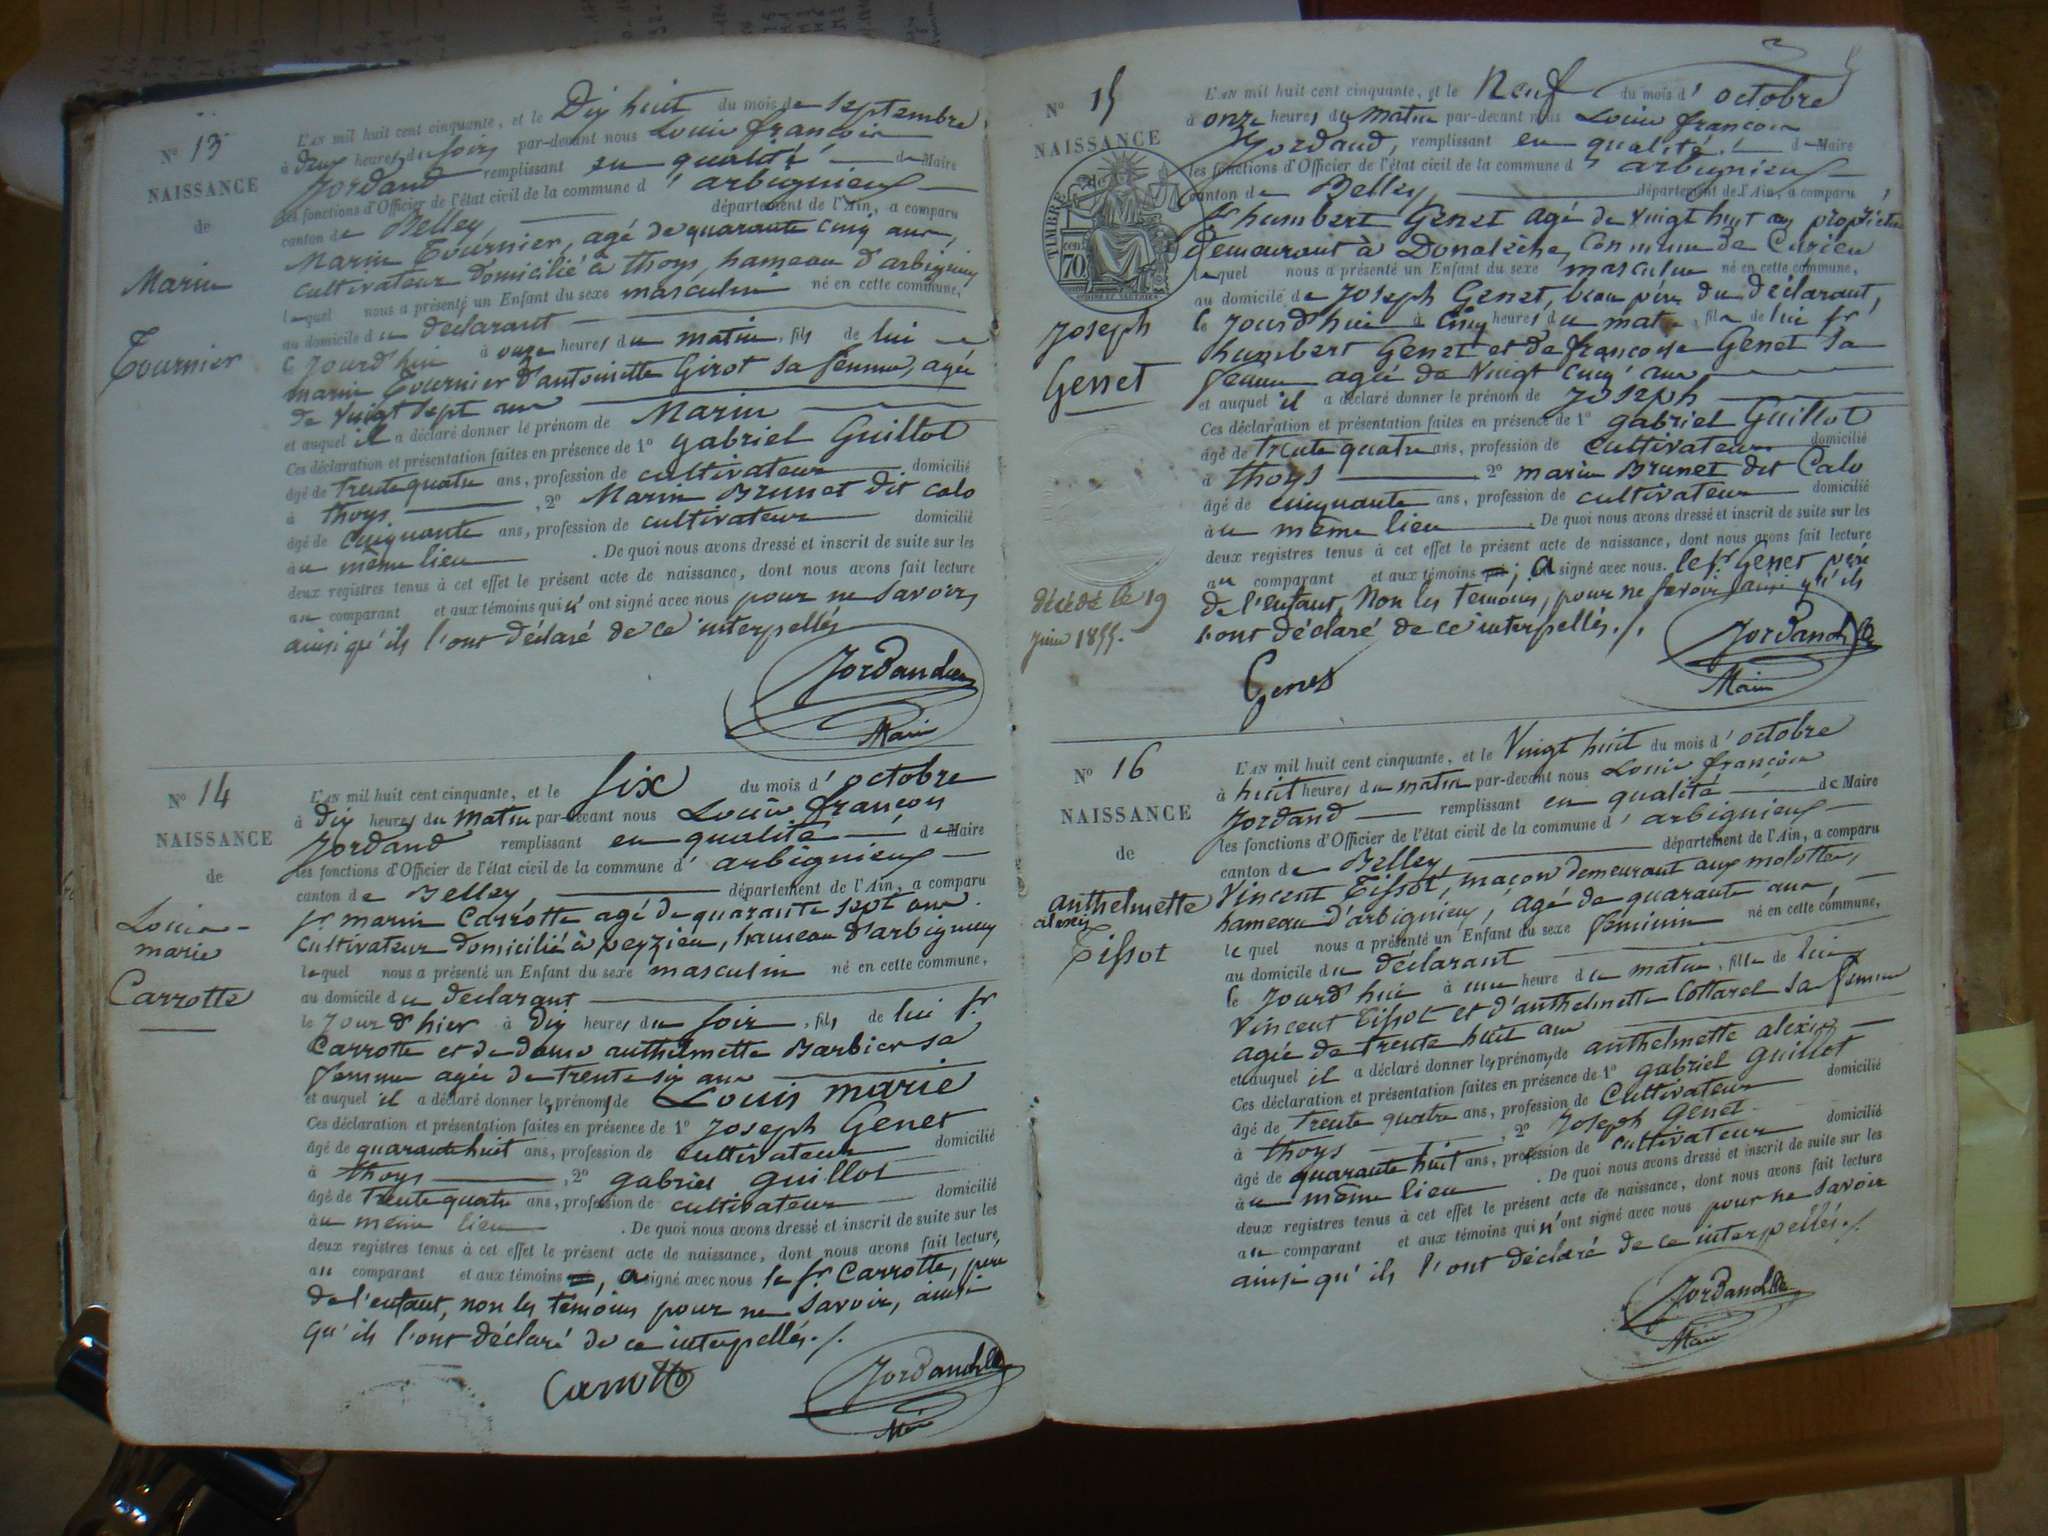 N° 13
NAISSANCE
de
Marin
Tournier
L'AN mil huit cent cinquante, et le Dix huit du mois de septembre
à deux heures du soir, par-devant nous Louis françois
Jordand remplissant en qualité de Maire
les fonctions d'Officier de l'état civil de la commune d'arbignieux
canton de Belley, département de l'Ain, a comparu
Marin Tournier, agé de quarante cinq ans,
cultivateur domicilié à thoys, hameau d'arbignieux
lequel nous a présenté un Enfant du sexe masculin né en cette commune,
au domicile du déclarant
le jourd'hui à onze heures du matin, fils de lui
marin Tournier d'antoinette Girot sa femme, agée
de vingt sept ans
et auquel il a déclaré donner le prénom de Marin
Ces déclaration et présentation faites en présence de 1° gabriel Guillot
âgé de trente quatre ans, profession de cultivateur domicilié
à thoys, 2° Marin Brunet dit calo
âgé de cinquante ans, profession de cultivateur domicilié
au même lieu. De quoi nous avons dressé et inscrit de suite sur les
deux registres tenus à cet effet le présent acte de naissance, dont nous avons fait lecture
au comparant et aux témoins qui n'ont signé avec nous pour ne savoir,
ainsi qu'ils l'ont déclaré de ce interpellés
Jordand
Maire
N° 14
NAISSANCE
de
Louis-
marie
Carrotte
L'AN mil huit cent cinquante, et le six du mois d'octobre
à dix heures du matin par-devant nous Louis françois
Jordand remplissant en qualité de Maire
les fonctions d'Officier de l'état civil de la commune d'arbignieux
canton de Belley, département de l'Ain, a comparu
sr marin Carrotte agé de quarante sept ans
cultivateur domicilié à peyzieu, hameau d'arbignieux
lequel nous a présenté un Enfant du sexe masculin né en cette commune,
au domicile du déclarant
le jour d'hier à dix heures du soir, fils de lui sr
Carrotte et de dame anthelmette Barbier sa
femme agée de trente six ans
et auquel il a déclaré donner les prénoms de Louis marie
Ces déclaration et présentation faites en présence de 1° Joseph Genet
âgé de quarante huit ans, profession de cultivateur domicilié
à thoys, 2° gabriel guillot
âgé de trente quatre ans, profession de cultivateur domicilié
au même lieu. De quoi nous avons dressé et inscrit de suite sur les
deux registres tenus à cet effet le présent acte de naissance, dont nous avons fait lecture,
au comparant et aux témoins, a signé avec nous le sr Carrotte, père
de l'enfant, non les témoins pour ne savoir, ainsi
qu'ils l'ont déclaré de ce interpellés./.
Carrotte
Jordand
Maire
N° 15
NAISSANCE
de
TIMBRE
70
cen
Joseph
Genet
décédé le 19
juin 1855.
L'AN mil huit cent cinquante, et le Neuf du mois d'octobre
à onze heures du matin par-devant nous Louis françois
Jordand, remplissant en qualité de Maire
les fonctions d'Officier de l'état civil de la commune d'arbignieux
canton de Belley, département de l'Ain, a comparu
sr humbert Genet agé de vingt huit ans propriétaire
demeurant à Donalèche, Commune de Curieu
lequel nous a présenté un Enfant du sexe masculin né en cette commune,
au domicile de Joseph Genet, beau père du déclarant,
le jourd'hui à cinq heures du matin, fils de lui sr
humbert Genet et de françoise Genet sa
femme agée de vingt cinq ans
et auquel il a déclaré donner le prénom de Joseph
Ces déclaration et présentation faites en présence de 1° gabriel Guillot
âgé de trente quatre ans, profession de cultivateur domicilié
à thoys 2° marin Brunet dit Calo
âgé de cinquante ans, profession de cultivateur domicilié
au même lieu. De quoi nous avons dressé et inscrit de suite sur les
deux registres tenus à cet effet le présent acte de naissance, dont nous avons fait lecture
au comparant et aux témoins; a signé avec nous. le sr Genet père
de l'enfant, Non les témoins, pour ne savoir ainsi qu'ils
l'ont déclaré de ce interpellés./.
Genet
Jordand
Maire
N° 16
NAISSANCE
de
anthelmette
alexis
Tissot
L'AN mil huit cent cinquante, et le Vingt huit du mois d'octobre
à huit heures du matin par-devant nous Louis françois
Jordand remplissant en qualité de Maire
les fonctions d'Officier de l'état civil de la commune d'arbignieux
canton de Belley, département de l'Ain, a comparu
Vincent Tissot, maçon demeurant aux molottes,
hameau d'arbignieux, âgé de quarante ans,
lequel nous a présenté un Enfant du sexe féminin né en cette commune,
au domicile du déclarant
le jourd'hui à une heure du matin, fille de lui
Vincent Tissot et d'anthelmette Cottarel sa femme
agée de trente huit ans
et auquel il a déclaré donner les prénoms de anthelmette alexis
Ces déclaration et présentation faites en présence de 1° gabriel guillot
âgé de trente quatre ans, profession de Cultivateur domicilié
à thoys, 2° Joseph Genet
âgé de quarante huit ans, profession de cultivateur domicilié
au même lieu. De quoi nous avons dressé et inscrit de suite sur les
deux registres tenus à cet effet le présent acte de naissance, dont nous avons fait lecture
au comparant et aux témoins qui n'ont signé avec nous pour ne savoir
ainsi qu'ils l'ont déclaré de ce interpellés./.
Jordand
Maire